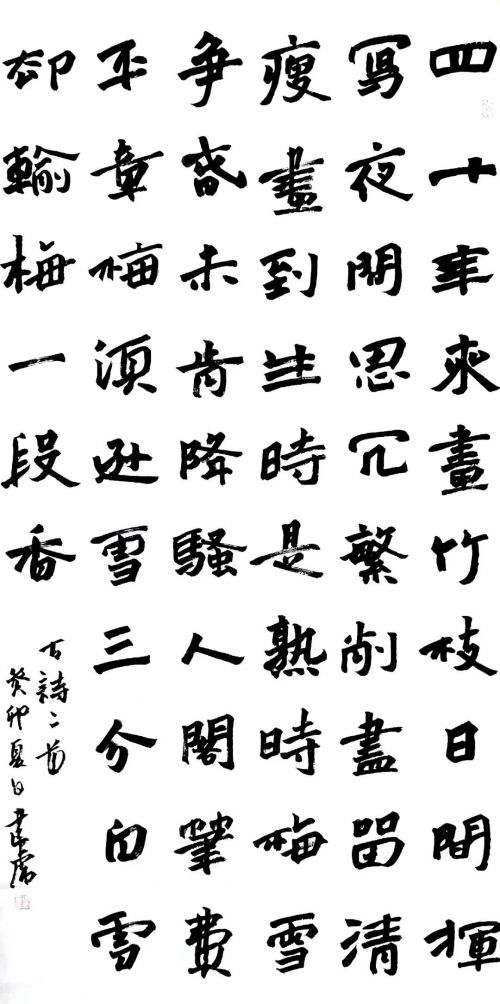 四十年來畫竹枝日間揮
寫夜間思冗繁削盡留清
瘦畫到生時是熟時梅雪
爭春未肯降騷人閣筆費
平章梅須遜雪三分白雪
卻輸梅一段香
古詩二首
癸卯夏日